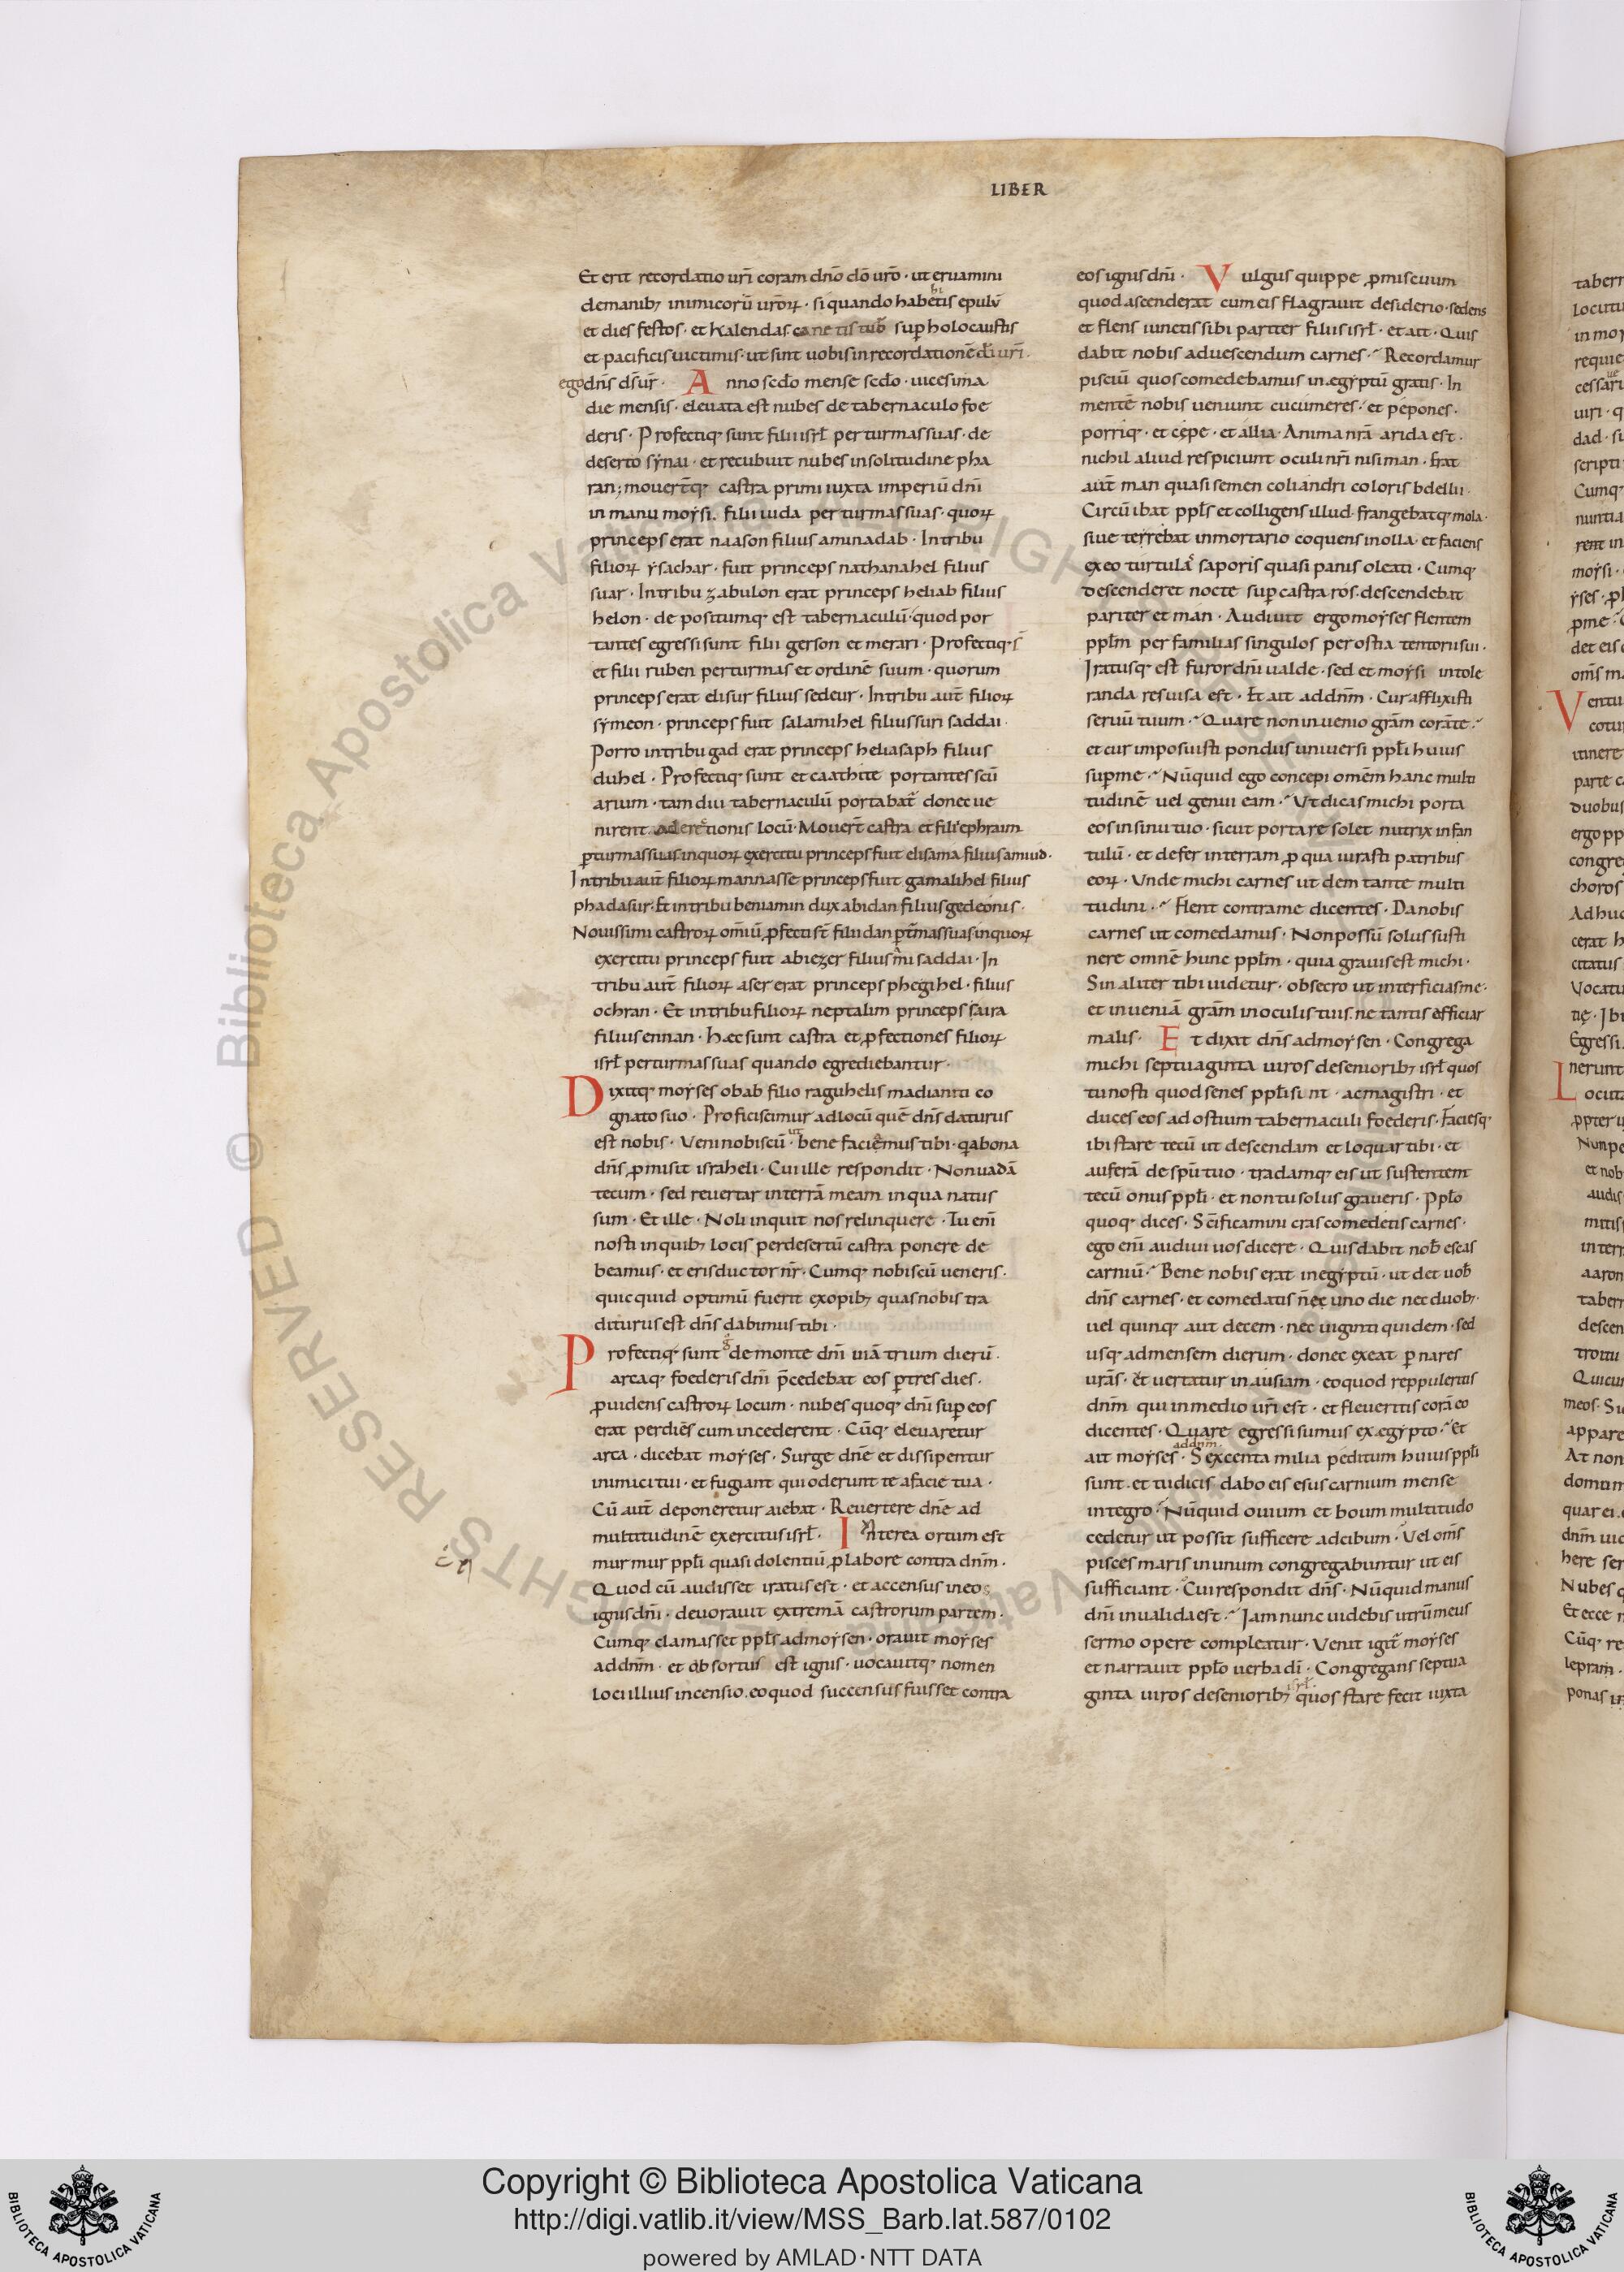 LIBER
Et erit recordatio urī coram dño dō urō · ut eruamini
demanibꝫ inimicorū urōꝝ · si quando habebitis epulū
et dies festos · et kalendas canetis tub̄ sup holocaustis
et pacificis uictimis · ut sint uobis in recordationē di uri ·
ego dñs ds̄ ur̄ · Anno scdo mense scdo · uicesima
die mensis · eleuata est nubes de tabernaculo foe
deris · Profectiqꝫ sunt filii isrł per turmas suas · de
deserto sẏnai · et recubuit nubes in solitudine pha
ran; mouert̄qꝫ castra primi iuxta imperiū dñi
in manu moẏsi. filii iuda per turmas suas · quoꝝ
princeps erat naason filius aminadab · In tribu
filioꝝ ẏsachar · fuit princeps nathanahel filius
suar · In tribu zabulon erat princeps heliab filius
helon · de positumqꝫ est tabernaculū · quod por
tantes egressi sunt filii gerson et merari · Profectiqꝫ s̄
et filii ruben per turmas et ordinē suum · quorum
princeps erat elisur filius sedeur · In tribu aut̄ filioꝝ
sẏmeon · princeps fuit salamihel filius suri saddai ·
Porro in tribu gad erat princeps heliasaph filius
duhel · Profectiqꝫ sunt et caathite portantes scū
arium · tam diu tabernaculū portabat̄ donec ue
nirent ad erectionis locū · Mouert̄ castra et filii ephraim
ꝑ turmas suas in quoꝝ exercitu princeps fuit elisama filius amiud ·
In tribu aut̄ filioꝝ mannasse princeps fuit gamalihel filius
phadasur · Et in tribu beniamin dux abidan filius gedeonis ·
Nouissimi castroꝝ omīū ꝓfecti st̄ filii dan ꝑ t̄mas suas in quoꝝ
exercitu princeps fuit abiezer filius ami saddai · In
tribu aut̄ filioꝝ aser erat princeps phegihel · filius
ochran · Et in tribu filioꝝ neptalim princeps saira
filius ennan · Hæc sunt castra et ꝓfectiones filioꝝ
isrł per turmas suas quando egrediebantur ·
Dixitqꝫ moẏses obab filio raguhelis madianiti co
gnato suo · Proficiscimur ad locū quē dñs daturus
est nobis · Veni nobiscū · ut bene faciemus tibi · qa bona
dñs ꝓmisit israheli · Cui ille respondit · Non uadā
tecum · sed reuertar in terrā meam in qua natus
sum · Et ille · Noli inquit nos relinquere · Tu enī
nosti in quibꝫ locis per desertū castra ponere de
beamus · et eris ductor nr̄ · Cumqꝫ nobiscū ueneris ·
quicquid optimū fuerit ex opibꝫ quas nobis tra
diturus est dñs dabimus tibi ·
Profectiqꝫ sunt g̊ de monte dñi uiā trium dierū ·
arcaqꝫ foederis dñi p̄cedebat eos ꝑ tres dies ·
ꝓuidens castroꝝ locum · nubes quoqꝫ dñi sup eos
erat per diēs cum incederent · Cūqꝫ eleuaretur
arca · dicebat moẏses · Surge dñe et dissipentur
inimici tui · et fugiant qui oderunt te a facie tua ·
Cū aut̄ deponeretur aiebat · Reuertere dñe ad
multitudinē exercitus isrł · Interea ortum est
murmur ppłi quasi dolentiū ꝓ labore contra dñm ·
Quod cū audisset iratus est · et accensus in eos
ignis dñi · deuorauit extremā castrorum partem ·
Cumqꝫ clamasset ppłs ad moẏsen · orauit moẏses
ad dñm · et obsortus est ignis · uocauitqꝫ nomen
loci illius incensio. eo quod succensus fuisset contra
eos ignis dñi · Vulgus quippe ꝓmiscuum
quod ascenderat cum eis flagrauit desiderio · sedens
et flens iunctis sibi pariter filiis isrł · et ait · Quis
dabit nobis ad uescendum carnes · Recordamur
pisciū quos comedebamus in egẏptū gratis · In
mentē nobis ueniunt cucumeres · et pepones ·
porriqꝫ · et cepe · et allia · Anima nrā arida est ·
nichil aliud respiciunt oculi nrī nisi man · Erat
aut̄ man quasi semen coliandri coloris bdellii ·
Circūibat ppłs et colligens illud · frangebatqꝫ mola ·
siue terrebat in mortario coquens in olla · et faciens
ex eo turtulas saporis quasi panis oleati · Cumqꝫ
descenderet nocte sup castra ros · descendebat
pariter et man · Audiuit ergo moẏses flentem
ppłm per familias singulos per ostia tentorii sui ·
Iratusqꝫ est furor dñi ualde · sed et moẏsi intole
randa res uisa est · Et ait ad dñm · Cur afflixisti
seruū tuum · Quare non inuenio grām corā te ·
et cur imposuisti pondus uniuersi ppłi huius
sup me · Nūquid ego concepi omēm hanc multi
tudinē uel genui eam · Ut dicas michi porta
eos in sinu tuo · sicut portare solet nutrix infan
tulū · et defer in terram ꝓ qua iurasti patribus
eoꝝ · Unde michi carnes ut dem tante multi
tudini · Flent contra me dicentes · Da nobis
carnes ut comedamus · Non possū solus susti
nere omnē hunc ppłm · quia grauis est michi ·
Sin aliter tibi uidetur · obsecro ut interficias me ·
et inueniā grām in oculis tuis. ne tantis efficiar
malis · Et dixit dñs ad moẏsen · Congrega
michi septuaginta uiros de senioribꝫ isrł quos
tu nosti quod senes ppłi sint · ac magistri · et
duces eos ad ostium tabernaculi foederis · faciesqꝫ
ibi stare tecū ut descendam et loquar tibi · et
auferā de spū tuo · tradamqꝫ eis ut sustentent
tecū onus ppłi · et non tu solus graueris · Ppło
quoqꝫ dices · Scīficamini cras comedetis carnes ·
ego enī audiui uos dicere · Quis dabit nob̄ escas
carniū · Bene nobis erat in egẏptū · ut det uob̄
dñs carnes · et comedatis n̄ec uno die nec duobꝫ ·
uel quinqꝫ aut decem · nec uiginti quidem · sed
usqꝫ ad mensem dierum · donec exeat ꝑ nares
urās · et uertatur in ausiam · eo quod reppuleritis
dñm qui in medio urī est · et fleueritis corā eo
dicentes · Quare egressi sumus ex egẏpto · Et
ait moẏses · ad dñm · Sexcenta milia peditum huius ppłi
sunt · et tu dicis dabo eis esus carnium mense
integro · Nūquid ouium et boum multitudo
cedetur ut possit sufficere ad cibum · Vel omīs
pisces maris in unum congregabuntur ut eis
sufficiant · Cui respondit dñs · Nūquid manus
dñi inualida est · Iam nunc uidebis utrū meus
sermo opere compleatur · Venit igit̄ moẏses
et narrauit ppło uerba di · Congregans septua
ginta uiros de senioribꝫ isrł · quos stare fecit iuxta
Copyright © Biblioteca Apostolica Vaticana
http://digi.vatlib.it/view/MSS_Barb.lat.587/0102
powered by AMLAD·NTT DATA
BIBLIOTECA APOSTOLICA VATICANA
BIBLIOTECA APOSTOLICA VATICANA